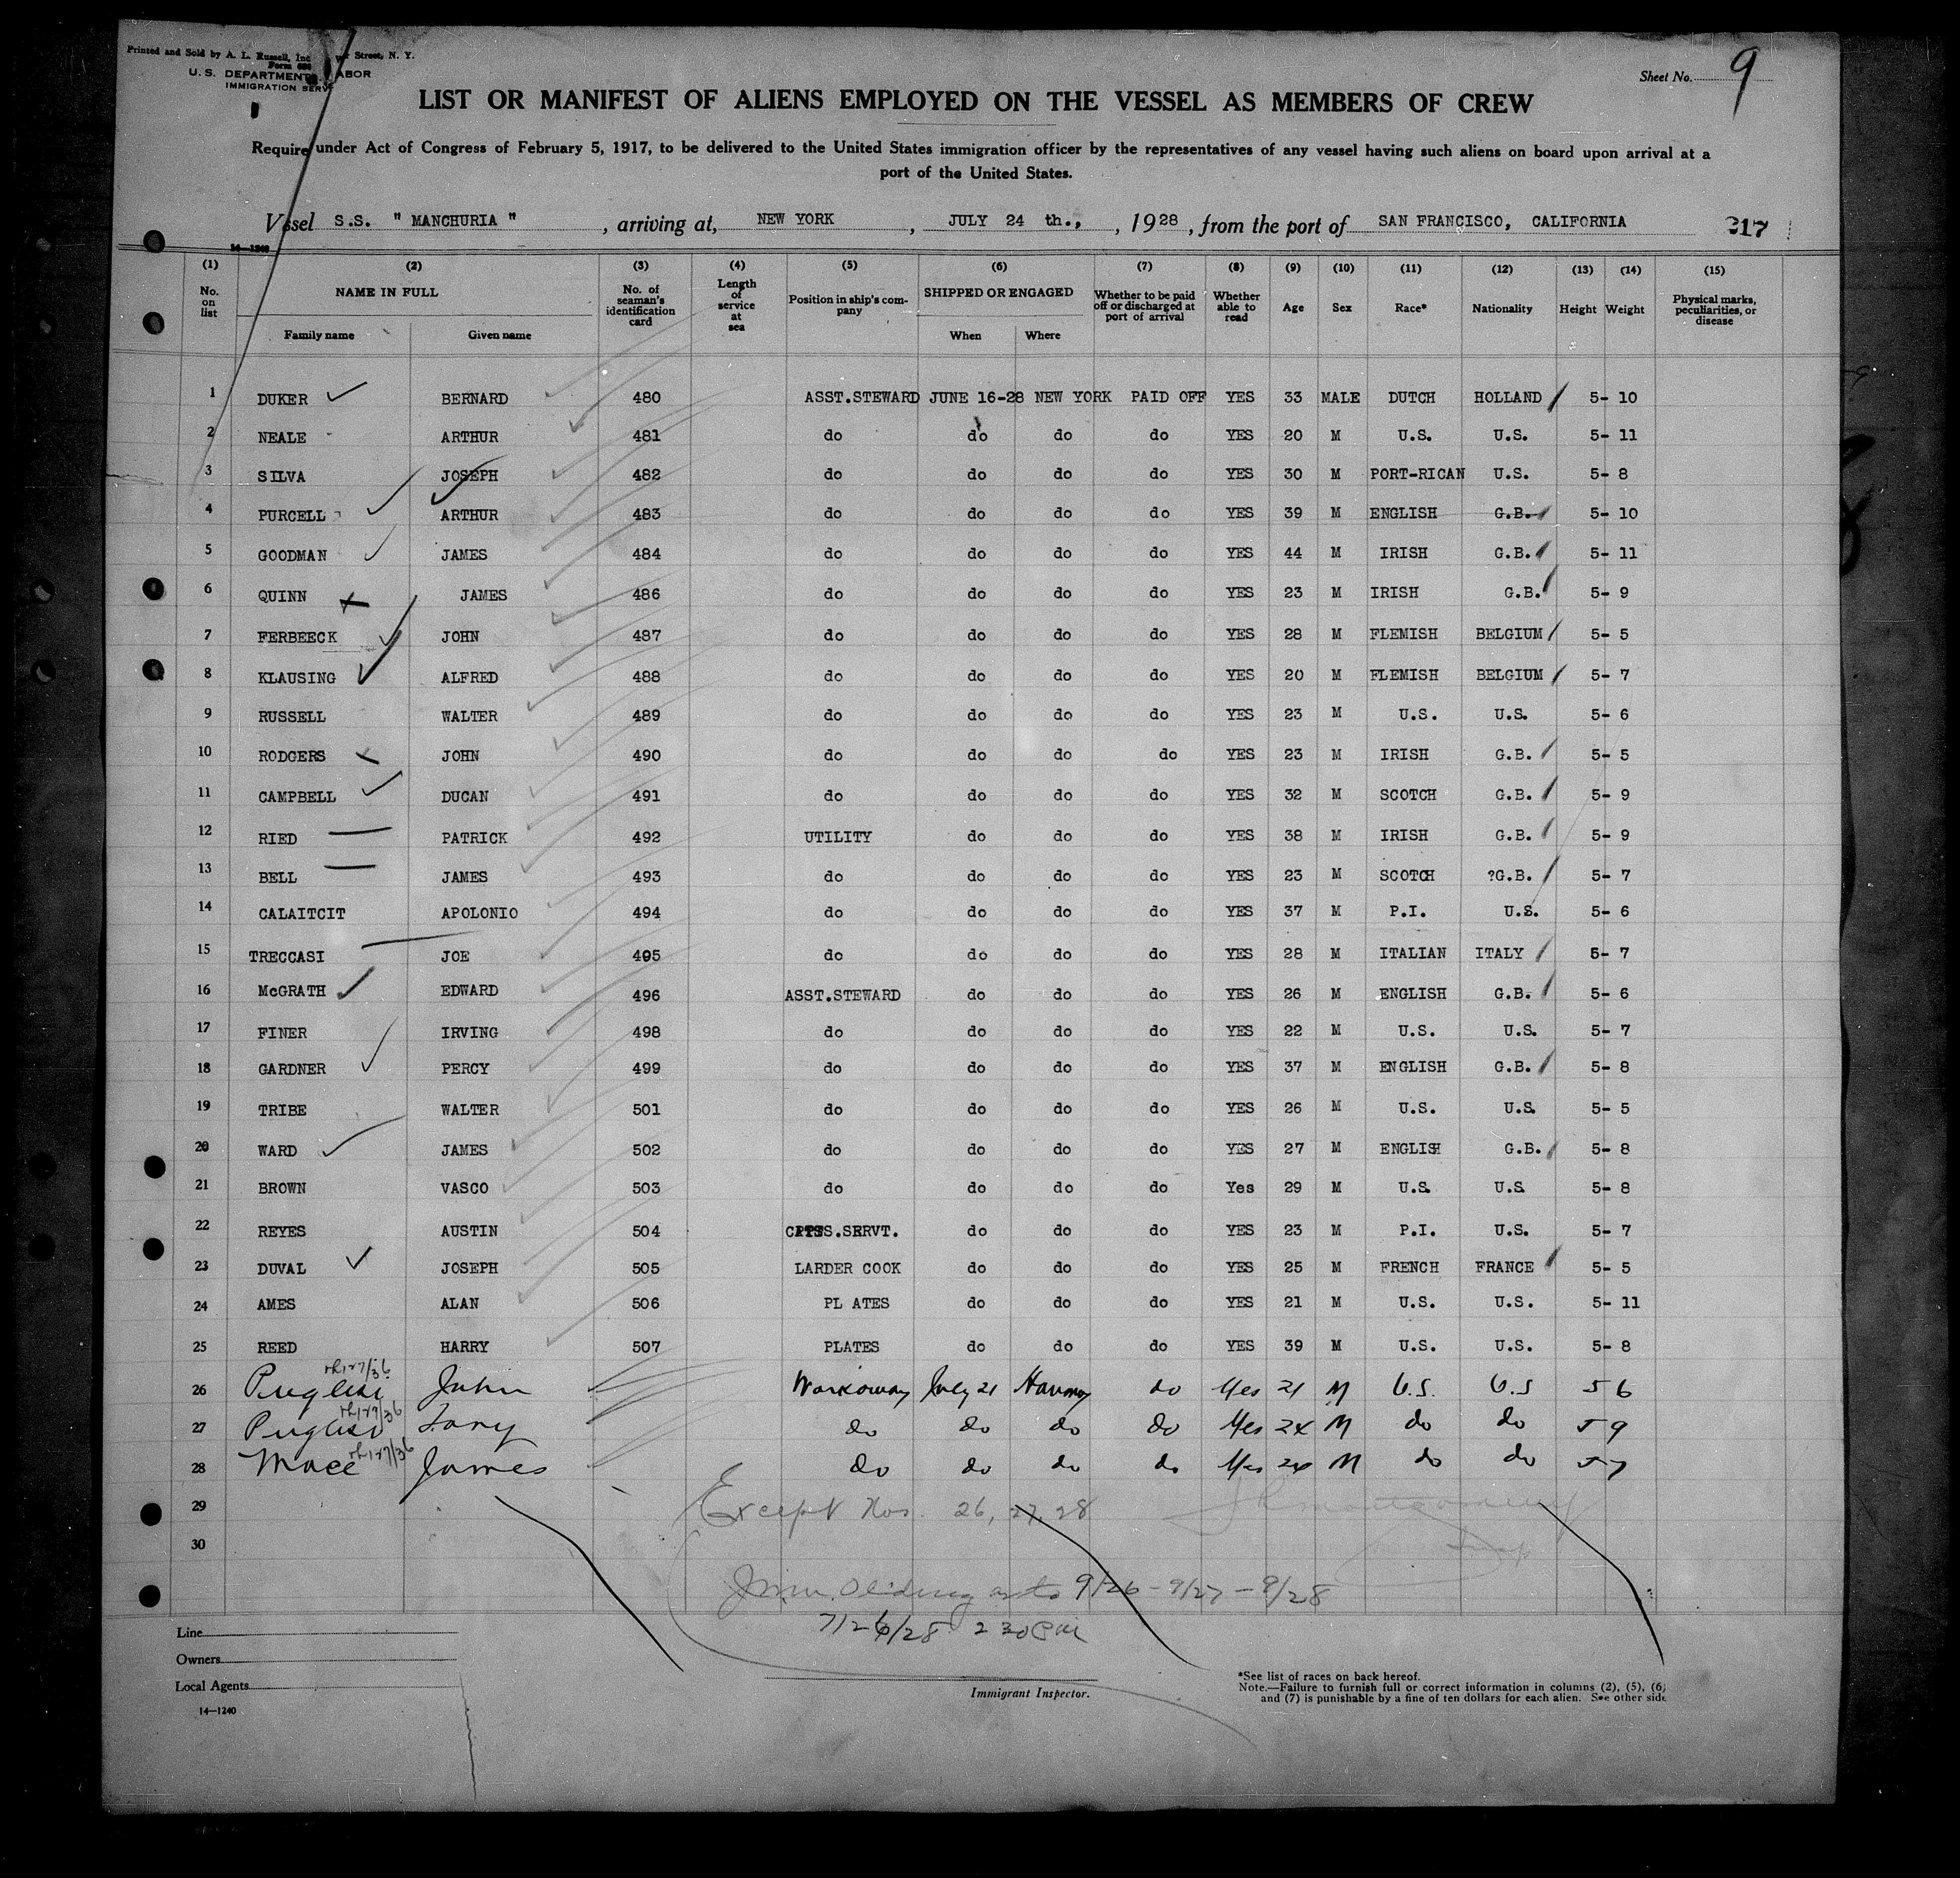 Printed and Sold by A. L. Russell, Inc Street, N. Y.
Form 689
U. S. DEPARTMENT LABOR
IMMIGRATION SERV
Sheet No. 9
LIST OR MANIFEST OF ALIENS EMPLOYED ON THE VESSEL AS MEMBERS OF CREW
Require under Act of Congress of February 5, 1917, to be delivered to the United States immigration officer by the representatives of any vessel having such aliens on board upon arrival at a
port of the United States.
Vessel S.S. " MANCHURIA " , arriving at, NEW YORK , JULY 24 th., , 1928 , from the port of SAN FRANCISCO, CALIFORNIA 217
14—1240
(1) (2) (3) (4) (5) (6) (7) (8) (9) (10) (11) (12) (13) (14) (15)
No. on list NAME IN FULL Family name Given name No. of seaman's identification card Length of service at sea Position in ship's company SHIPPED OR ENGAGED When Where Whether to be paid off or discharged at port of arrival Whether able to read Age Sex Race* Nationality Height Weight Physical marks, peculiarities, or disease
1 DUKER BERNARD 480 ASST.STEWARD JUNE 16-28 NEW YORK PAID OFF YES 33 MALE DUTCH HOLLAND 5- 10
2 NEALE ARTHUR 481 do do do do YES 20 M U.S. U.S. 5- 11
3 SILVA JOSEPH 482 do do do do YES 30 M PORT-RICAN U.S. 5- 8
4 PURCELL ARTHUR 483 do do do do YES 39 M ENGLISH G.B. 5- 10
5 GOODMAN JAMES 484 do do do do YES 44 M IRISH G.B. 5- 11
6 QUINN JAMES 486 do do do do YES 23 M IRISH G.B. 5- 9
7 FERBEECK JOHN 487 do do do do YES 28 M FLEMISH BELGIUM 5- 5
8 KLAUSING ALFRED 488 do do do do YES 20 M FLEMISH BELGIUM 5- 7
9 RUSSELL WALTER 489 do do do do YES 23 M U.S. U.S. 5- 6
10 RODGERS JOHN 490 do do do do YES 23 M IRISH G.B. 5- 5
11 CAMPBELL DUCAN 491 do do do do YES 32 M SCOTCH G.B. 5- 9
12 RIED PATRICK 492 UTILITY do do do YES 38 M IRISH G.B. 5- 9
13 BELL JAMES 493 do do do do YES 23 M SCOTCH ?G.B. 5- 7
14 CALAITCIT APOLONIO 494 do do do do YES 37 M P.I. U.S. 5- 6
15 TRECCASI JOE 495 do do do do YES 28 M ITALIAN ITALY 5- 7
16 McGRATH EDWARD 496 ASST.STEWARD do do do YES 26 M ENGLISH G.B. 5- 6
17 FINER IRVING 498 do do do do YES 22 M U.S. U.S. 5- 7
18 GARDNER PERCY 499 do do do do YES 37 M ENGLISH G.B. 5- 8
19 TRIBE WALTER 501 do do do do YES 26 M U.S. U.S. 5- 5
20 WARD JAMES 502 do do do do YES 27 M ENGLISH G.B. 5- 8
21 BROWN VASCO 503 do do do do Yes 29 M U.S. U.S 5- 8
22 REYES AUSTIN 504 CPTS.SERVT. do do do YES 23 M P.I. U.S. 5- 7
23 DUVAL JOSEPH 505 LARDER COOK do do do YES 25 M FRENCH FRANCE 5- 5
24 AMES ALAN 506 PL ATES do do do YES 21 M U.S. U.S. 5- 11
25 REED HARRY 507 PLATES do do do YES 39 M U.S. U.S. 5- 8
26 Puglisi John Workaway July 21 Havana do Yes 21 M U.S. U.S 5 6
27 Puglisi Tony do do do do Yes 24 M do do 5 9
28 Mace James do do do do Yes 24 M do do 5 7
29 Except Nos. 26, 27, 28
30
as to 9/26 - 9/27 - 9/28
7/26/28 2 30 PM
Line
Owners
Local Agents
14—1240
Immigrant Inspector.
*See list of races on back hereof.
Note.—Failure to furnish full or correct information in columns (2), (5), (6)
and (7) is punishable by a fine of ten dollars for each alien. See other side